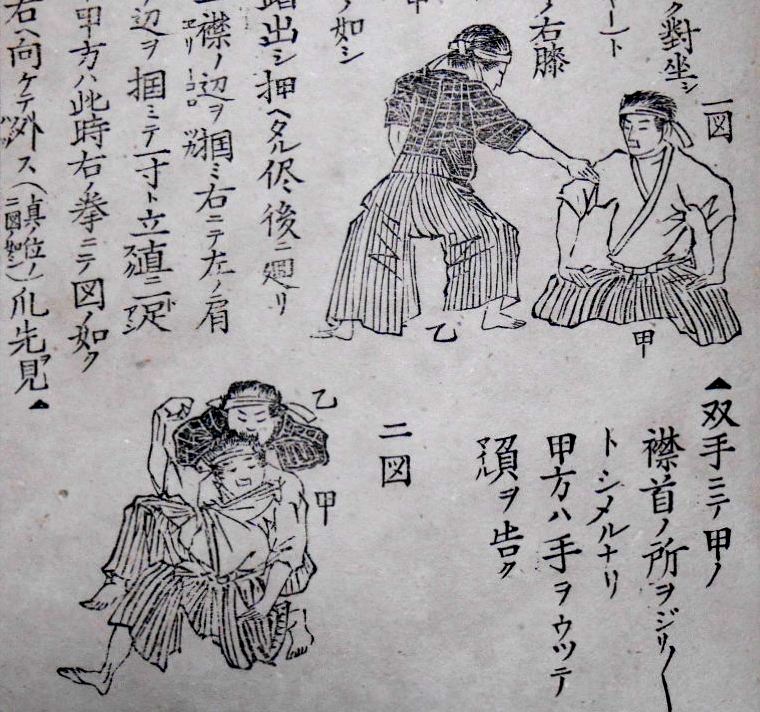 一図
ク對坐シ
ート
ノ右膝
乙
甲
ノ如シ
踏出シ押ヘタル侭後ニ廻リ
襟ノ辺ヲ掴ミ右ニテ左ノ肩
ノ辺ヲ掴ミテ一寸ト立直ニ足
甲方ハ此時右ノ拳ニテ図ノ如ク
右ヘ向ケテ外ス(真ノ位ノ二図ノ如シ)爪先見▲
▲双手ニテ甲ノ
襟首ノ所ヲジリ〳〵
トシメルナリ
甲方ハ手ヲウツテ
ヲ告ク
二図
乙
甲